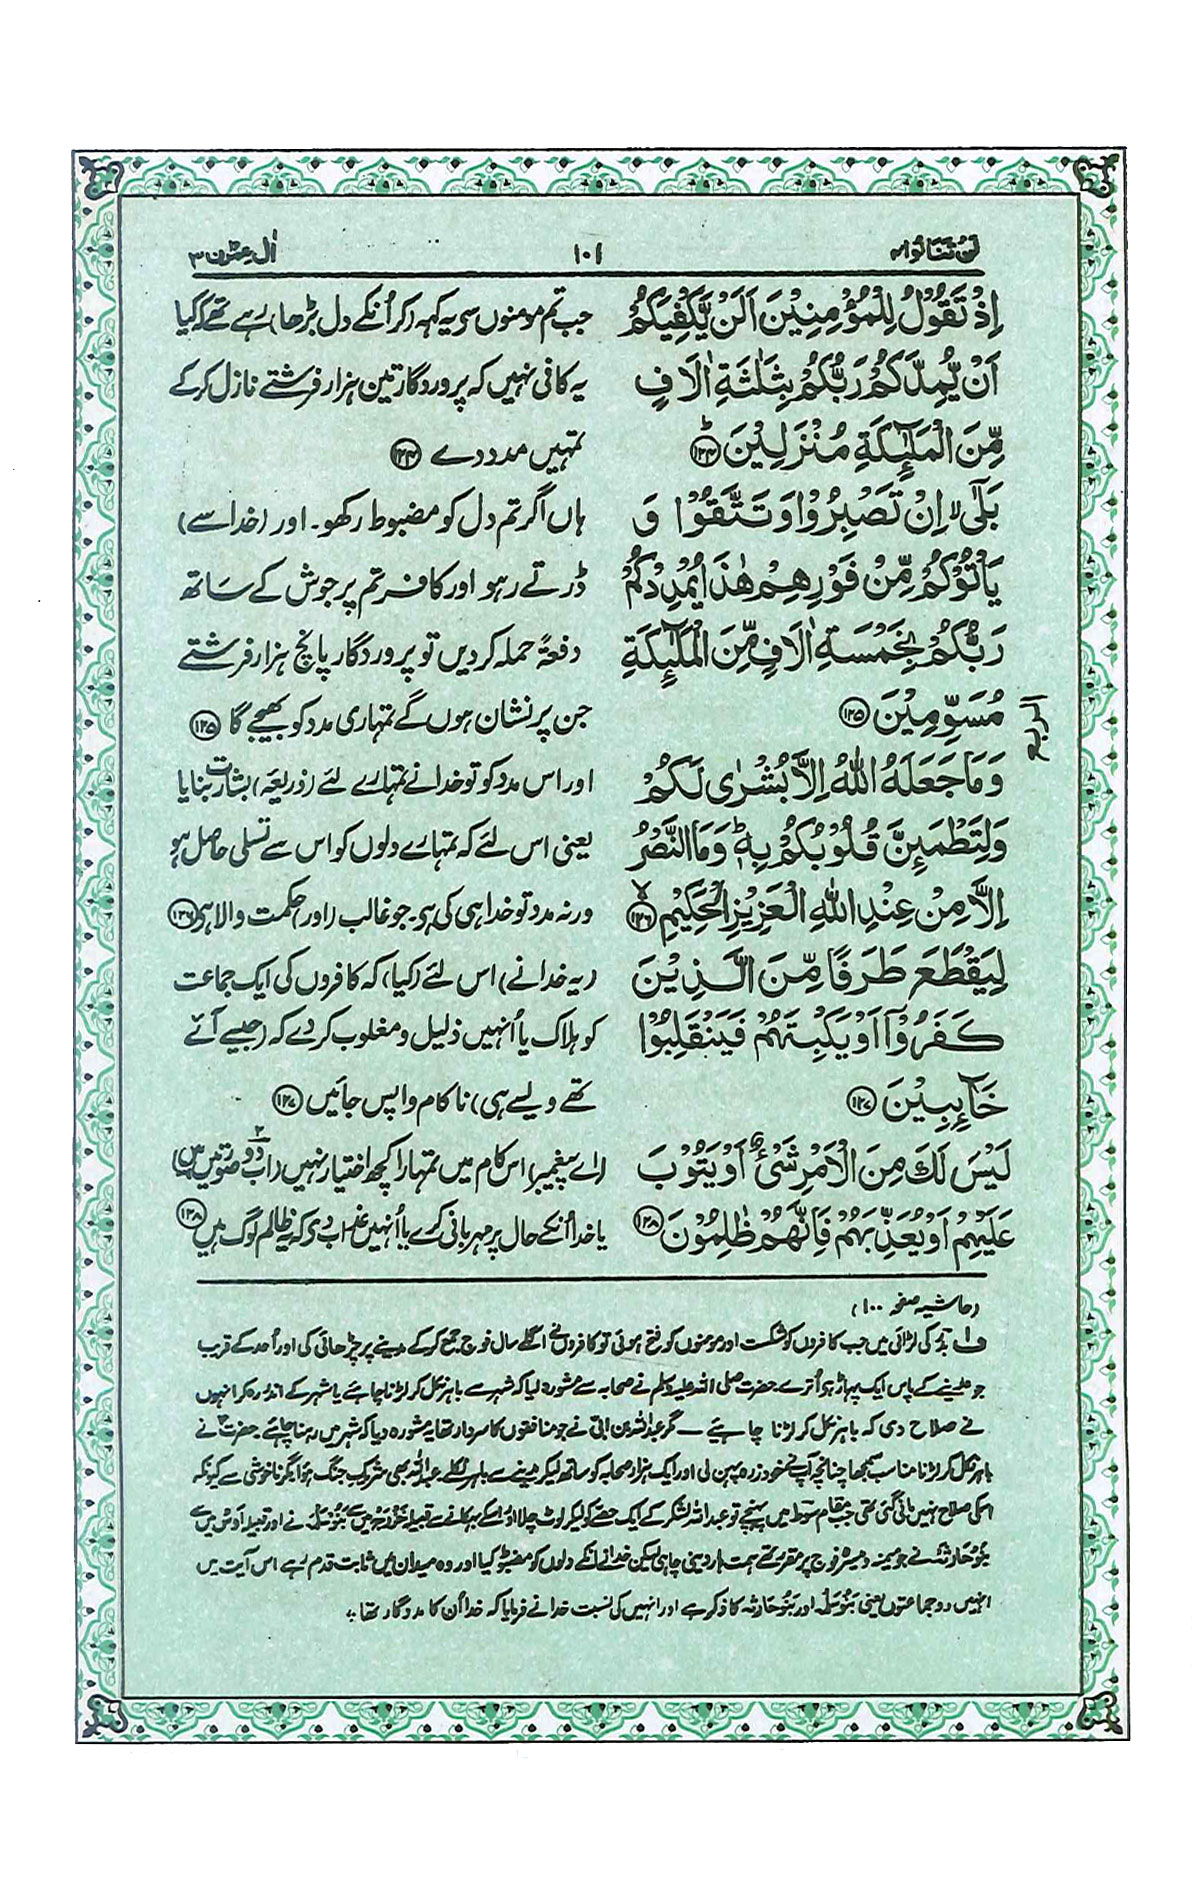 لن تنالوا ۴
۱۰۱
اٰل عمرٰن ۳
اِذْ تَقُوْلُ لِلْمُؤْمِنِيْنَ اَلَنْ يَّكْفِيَكُمْ
اَنْ يُّمِدَّكُمْ رَبُّكُمْ بِثَلٰثَةِ اٰلَافٍ
مِّنَ الْمَلٰٓئِكَةِ مُنْزَلِيْنَ ؕ ﴿۱۲۴﴾
بَلٰٓى ۙ اِنْ تَصْبِرُوْا وَتَتَّقُوْا وَ
يَاْتُوْكُمْ مِّنْ فَوْرِهِمْ هٰذَا يُمْدِدْكُمْ
رَبُّكُمْ بِخَمْسَةِ اٰلَافٍ مِّنَ الْمَلٰٓئِكَةِ
مُسَوِّمِيْنَ ﴿۱۲۵﴾
وَمَا جَعَلَهُ اللّٰهُ اِلَّا بُشْرٰى لَكُمْ
وَلِتَطْمَئِنَّ قُلُوْبُكُمْ بِهٖ ؕ وَمَا النَّصْرُ
اِلَّا مِنْ عِنْدِ اللّٰهِ الْعَزِيْزِ الْحَكِيْمِ ۙ ﴿۱۲۶﴾
لِيَقْطَعَ طَرَفًا مِّنَ الَّذِيْنَ
كَفَرُوْٓا اَوْ يَكْبِتَهُمْ فَيَنْقَلِبُوْا
خَآئِبِيْنَ ﴿۱۲۷﴾
لَيْسَ لَكَ مِنَ الْاَمْرِ شَىْءٌ اَوْ يَتُوْبَ
عَلَيْهِمْ اَوْ يُعَذِّبَهُمْ فَاِنَّهُمْ ظٰلِمُوْنَ ﴿۱۲۸﴾
الربع
جب تم مومنوں سے یہ کہہ (کر اُنکے دل بڑھا) رہے تھے کہ کیا
یہ کافی نہیں کہ پروردگار تین ہزار فرشتے نازل کر کے
تمہیں مدد دے ﴿۱۲۴﴾
ہاں اگر تم دل کو مضبوط رکھو۔ اور (خدا سے)
ڈرتے رہو اور کافر تم پر جوش کے ساتھ
دفعۃً حملہ کردیں تو پروردگار پانچ ہزار فرشتے
جن پر نشان ہوں گے تمہاری مدد کو بھیجے گا ﴿۱۲۵﴾
اور اس مدد کو تو خدا نے تمہارے لئے (ذریعۂ) بشارت بنایا
یعنی اس لئے کہ تمہارے دلوں کو اس سے تسلی حاصل ہو
ورنہ مدد تو خدا ہی کی ہے۔ جو غالب (اور) حکمت والا ہے ﴿۱۲۶﴾
(یہ خدا نے) اس لئے (کیا) کہ کافروں کی ایک جماعت
کو ہلاک یا اُنہیں ذلیل و مغلوب کر دے کہ (جیسے آئے
تھے ویسے ہی) ناکام واپس جائیں ﴿۱۲۷﴾
(اے پیغمبر) اس کام میں تمہارا کچھ اختیار نہیں (اب دو صورتیں ہیں)
یا خدا اُنکے حال پر مہربانی کرے یا اُنہیں عذاب دے کہ یہ ظالم لوگ ہیں ﴿۱۲۸﴾
(حاشیہ صفحہ ۱۰۰)
ف۱ بدر کی لڑائی میں جب کافروں کو شکست اور مومنوں کو فتح ہوئی تو کافروں نے اگلے سال فوج جمع کر کے مدینے پر چڑھائی کی اور اُحد کے قریب
جو مدینے کے پاس ایک پہاڑ ہے اُترے۔ حضرت صلی اللہ علیہ وسلم نے صحابہ سے مشورہ لیا کہ شہر سے باہر نکل کر لڑنا چاہئے یا شہر کے اندر رہ کر انہوں
نے صلاح دی کہ باہر نکل کر لڑنا چاہیے ۔ مگر عبداللہ بن ابی نے جو منافقوں کا سردار تھا یہ مشورہ دیا کہ شہر میں رہنا چاہئے۔ حضرت نے
باہر نکل کر لڑنا مناسب سمجھا چنانچہ آپ نے خود زرہ پہن لی اور ایک ہزار صحابہ کو ساتھ لیکر مدینے سے باہر نکلے عبداللہ بھی شریک جنگ ہوا مگر ناخوشی سے کیونکہ
اسکی صلاح نہیں مانی گئی تھی جب مقام سوط میں پہنچے تو عبداللہ لشکر کے ایک حصے کو لیکر لوٹ چلا اور اسکے بہکانے سے قبیلہ خزرج میں سے بنوسلمہ نے اور قبیلہ اَوس میں سے
بنو حارثہ نے جو میمنہ و میسرۂ فوج پر مقرر تھے ہمت ہار دینی چاہی لیکن خدا نے انکے دلوں کو مضبوط کیا اور وہ میدان میں ثابت قدم رہے اس آیت میں
انہیں دو جماعتوں یعنی بنوسلمہ اور بنو حارثہ کا ذکر ہے اور انہیں کی نسبت خدا نے فرمایا کہ خدا اُن کا مددگار تھا۔